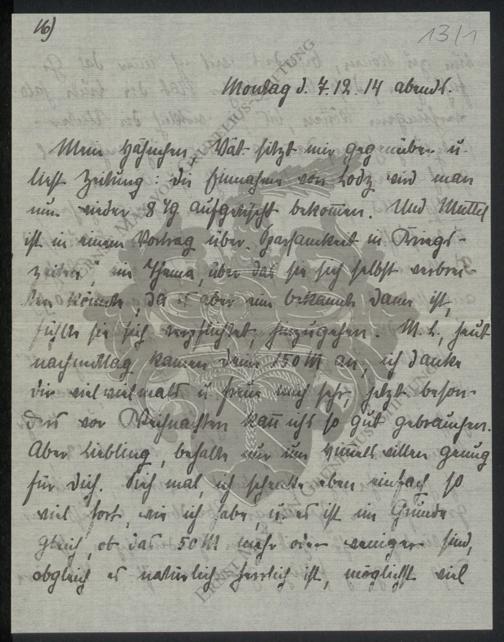 16)
13/1
Montag d. 7.12.14 abends.
Mein Häschen, Vat. sitzt mir gegenüber u.
liest Zeitung: die Einnahme von Lodz wird man
nun wieder 8 Tg aufgetischt bekommen. Und Muttel
ist in einem Vortrag über Sparsamkeit in Kriegs-
zeiten, ein Thema, über das sie sich selbst verbrei-
ten könnte, da es aber eine bekannte Dame ist,
fühlte sie sich verpflichtet, hinzugehen. M. L., heut
nachmittag kamen denn 150 M an, ich danke
dir viel vielmals u. freue mich sehr, jetzt beson-
ders vor Weihnachten kann ich's so gut gebrauchen.
Aber Liebling, behalte nur um Himmels willen genug
für dich. Sieh mal, ich schenke eben einfach so
viel fort, wie ich habe u. es ist im Grunde
gleich, ob das 50 M mehr oder weniger sind,
obgleich es natürlich herrlich ist, möglichst viel